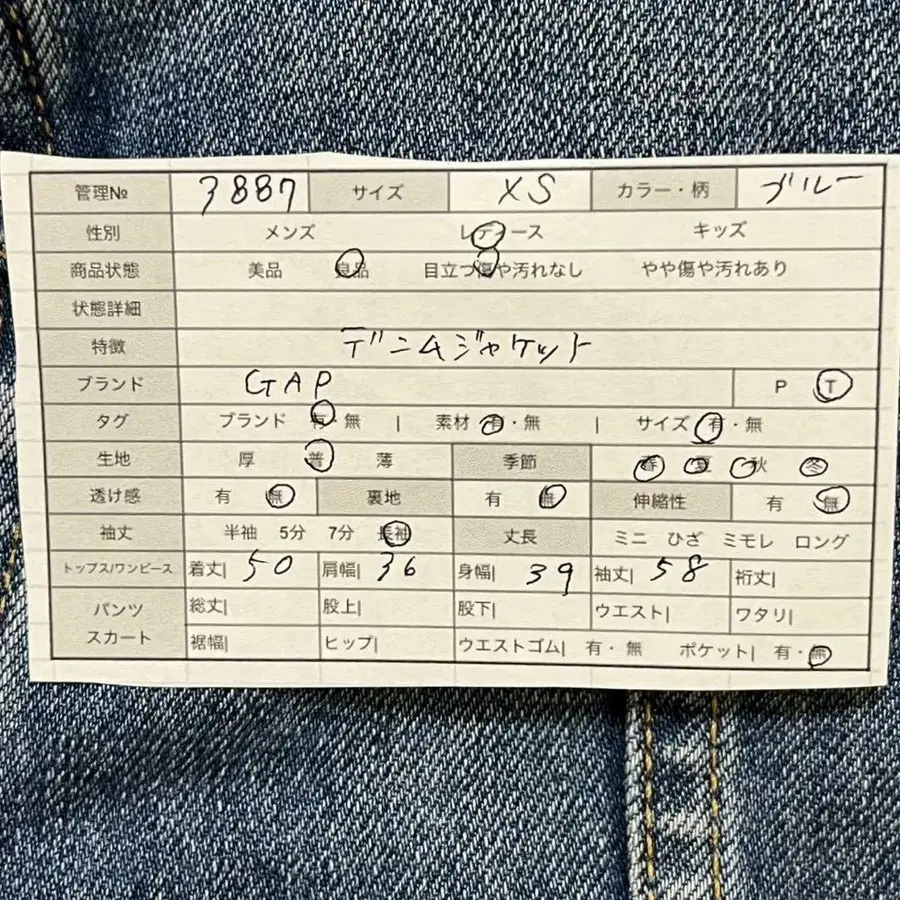 管理№ 3887 サイズ XS カラー・柄 ブルー
性別 メンズ レディース キッズ
商品状態 美品 良品 目立つ傷や汚れなし やや傷や汚れあり
状態詳細
特徴 デニムジャケット
ブランド GAP P T
タグ ブランド 有・無 | 素材 有・無 | サイズ 有・無
生地 厚 普 薄 季節 春 夏 秋 冬
透け感 有 無 裏地 有 無 伸縮性 有 無
袖丈 半袖 5分 7分 長袖 丈長 ミニ ひざ ミモレ ロング
トップス/ワンピース 着丈| 50 肩幅| 36 身幅| 39 袖丈| 58 裄丈|
パンツ スカート 総丈| 股上| 股下| ウエスト| ワタリ|
裾幅| ヒップ| ウエストゴム| 有・無 ポケット| 有・無